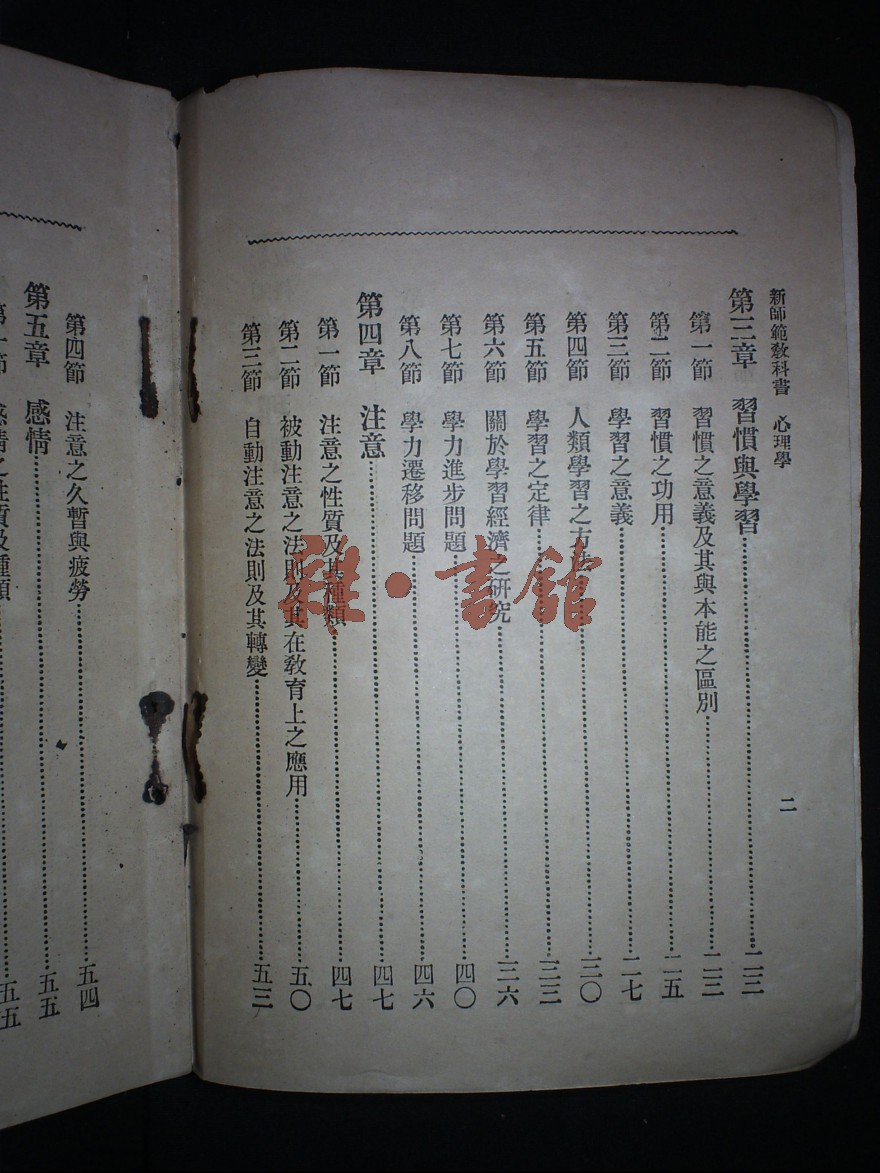 新師範教科書　心理學　二
第三章　習慣與學習……二三
第一節　習慣之意義及其與本能之區別……二三
第二節　習慣之功用……二五
第三節　學習之意義……二七
第四節　人類學習之方法……三〇
第五節　學習之定律……三三
第六節　關於學習經濟之研究……三六
第七節　學力進步問題……四〇
第八節　學力遷移問題……四六
第四章　注意……四七
第一節　注意之性質及其種類……四七
第二節　被動注意之法則及其在教育上之應用……五〇
第三節　自動注意之法則及其轉變……五三
第四節　注意之久暫與疲勞……五四
第五章　感情……五五
第一節　感情之性質及種類……五五
·書館